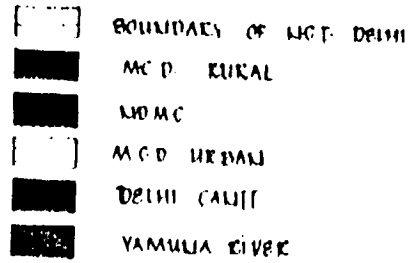 BOUNDARY OF NCT DELHI
MCD RURAL
NDMC
MCD URBAN
DELHI CANTT
YAMUNA RIVER